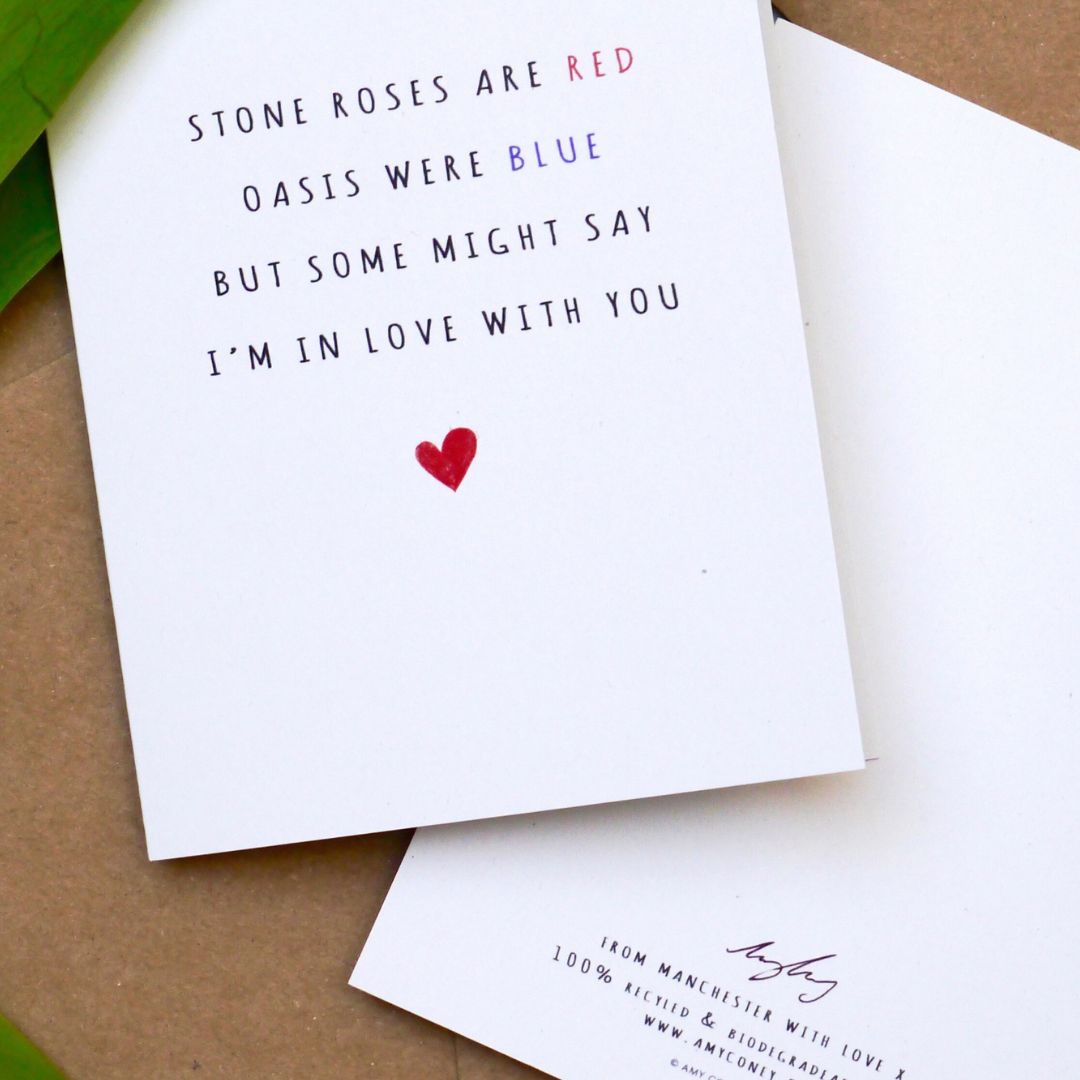 STONE ROSES ARE RED
OASIS WERE BLUE
BUT SOME MIGHT SAY
I'M IN LOVE WITH YOU
FROM MANCHESTER WITH LOVE X
100% RECYLED & 
WWW.AMYCONEY
© AMY